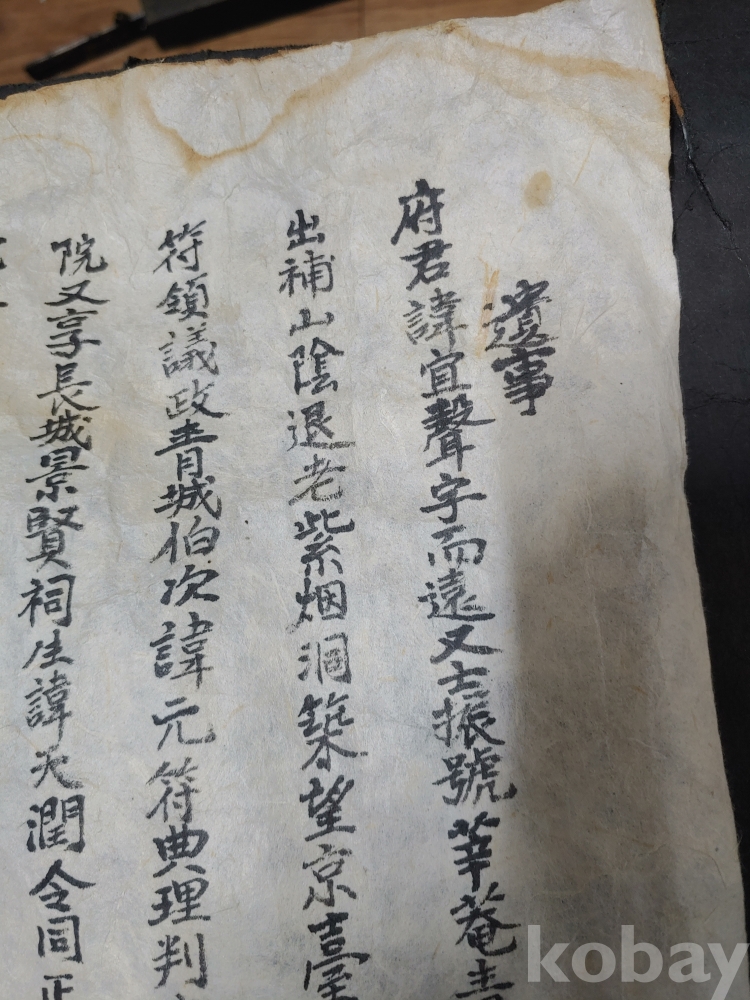 遺事
府君諱宜聲字而遠又士振號莘菴青
出補山陰退老紫烟洞築望京臺
符領議政青城伯次諱元符典理判
院又享長城景賢祠生諱天潤令同正
kobay